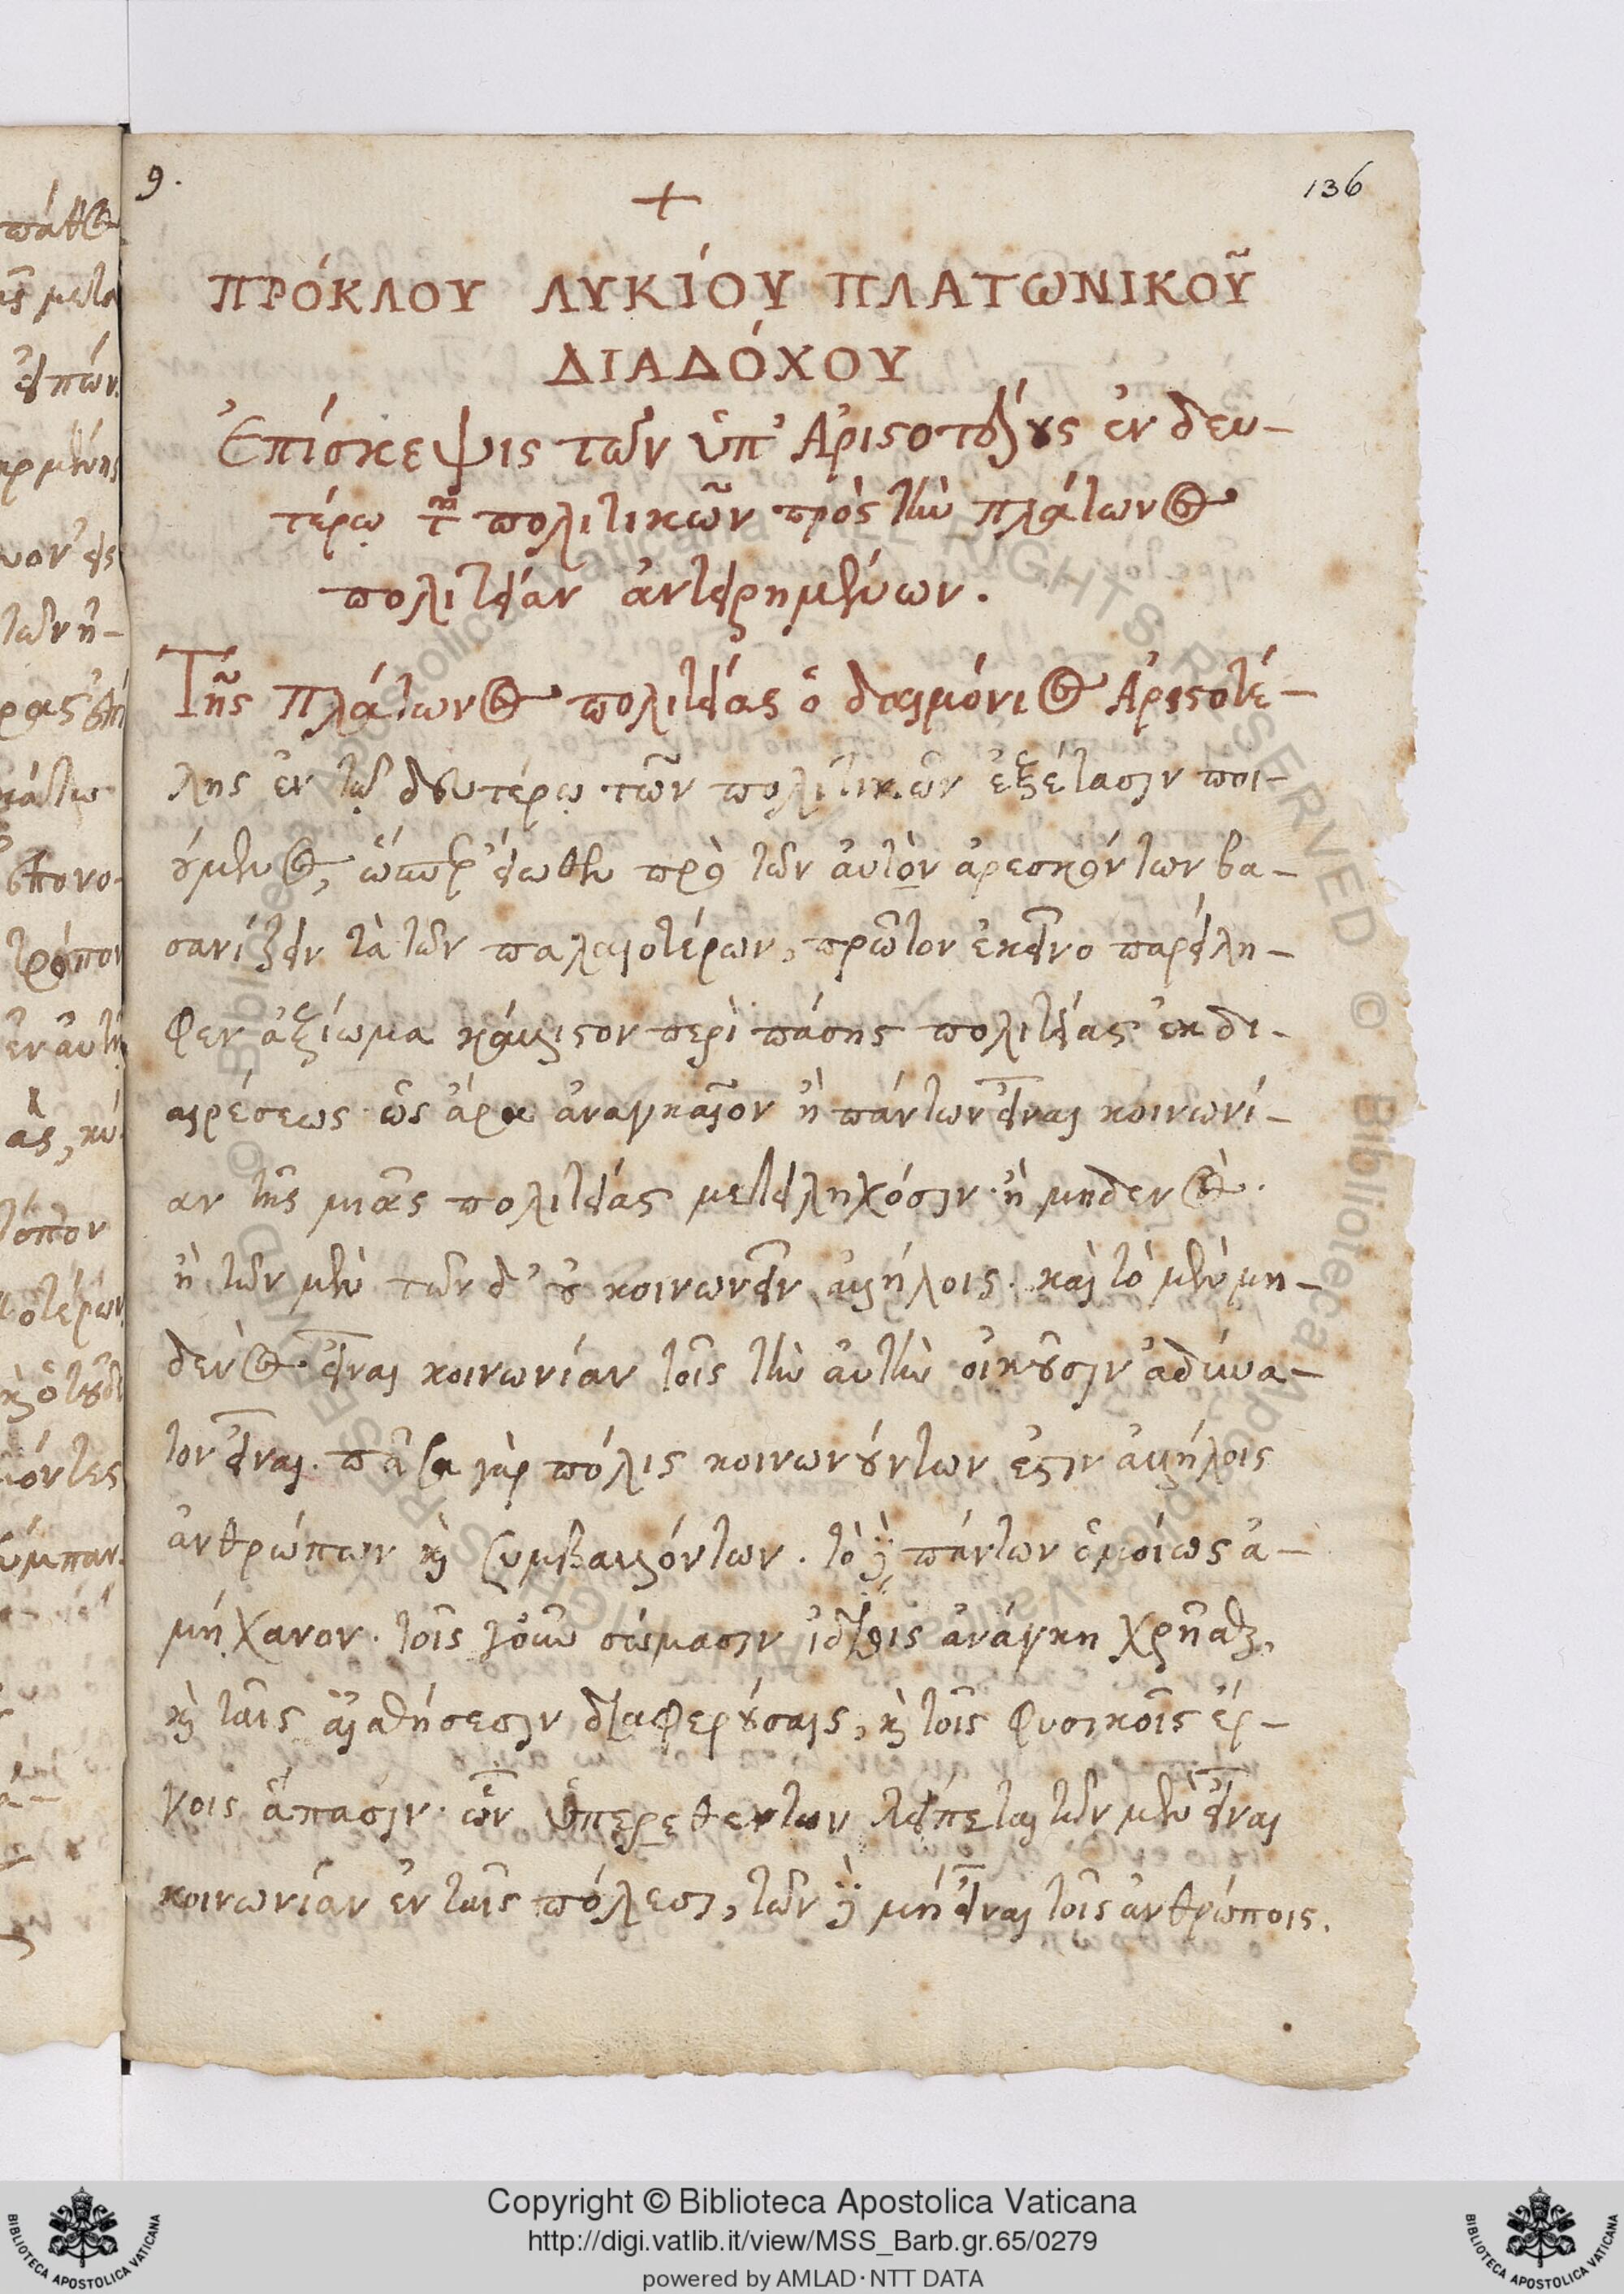 9.
136
+
ΠΡΌΚΛΟΥ ΛΥΚΊΟΥ ΠΛΑΤΩΝΙΚΟΥ͂
ΔΙΑΔΌΧΟΥ
Ἐπίσκεψις τῶν ὑπ' Ἀριστοτέλους ἐν δευ-
τέρῳ τῶν πολιτικῶν πρὸς τὴν πλάτωνος
πολιτείαν ἀντειρημένων.
Τῆς Πλάτωνος πολιτείας ὁ δαιμόνιος Ἀριστοτέ-
λης ἐν τῷ δευτέρῳ τῶν πολιτικῶν ἐξέτασιν ποι-
ούμενος, ὥσπερ εἴωθεν πρὸ τῶν αὐτὸν ἀρεσκόντων βα-
σανίζειν τὰ τῶν παλαιοτέρων, πρῶτον ἐκεῖνο παρείλη-
φεν ἀξίωμα κάλλιστον περὶ πάσης πολιτείας ἐκ δι-
αιρέσεως· ὡς ἄρα ἀναγκαῖον ἢ πάντων εἶναι κοινωνί-
αν τῆς μιᾶς πολιτείας μετειληχόσιν· ἢ μηδενὸς·
ἢ τῶν μὲν τῶν δ' οὐ κοινωνεῖν ἀλλήλοις· καὶ τὸ μὲν μη-
δενὸς εἶναι κοινωνίαν τοῖς τὴν αὐτὴν οἰκοῦσιν ἀδύνα-
τον εἶναι. πᾶσα γὰρ πόλις κοινωνούντων ἐστὶν ἀλλήλοις
ἀνθρώπων καὶ συμβαλλόντων. τὸ δὲ πάντων ὁμοίως ἀ-
μήχανον. τοῖς γοῦν σώμασιν ἰδίοις ἀνάγκη χρῆσθαι,
καὶ ταῖς αἰσθήσεσιν διαφερούσαις, καὶ τοῖς φυσικοῖς ἔρ-
γοις ἅπασιν· ὧν ὑπερεθεντων λείπεται τῶν μὲν εἶναι
κοινωνίαν ἐν ταῖς πόλεσι, τῶν δὲ μὴ εἶναι τοῖς ἀνθρώποις.
Copyright © Biblioteca Apostolica Vaticana
http://digi.vatlib.it/view/MSS_Barb.gr.65/0279
powered by AMLAD·NTT DATA
BIBLIOTECA APOSTOLICA VATICANA
BIBLIOTECA APOSTOLICA VATICANA